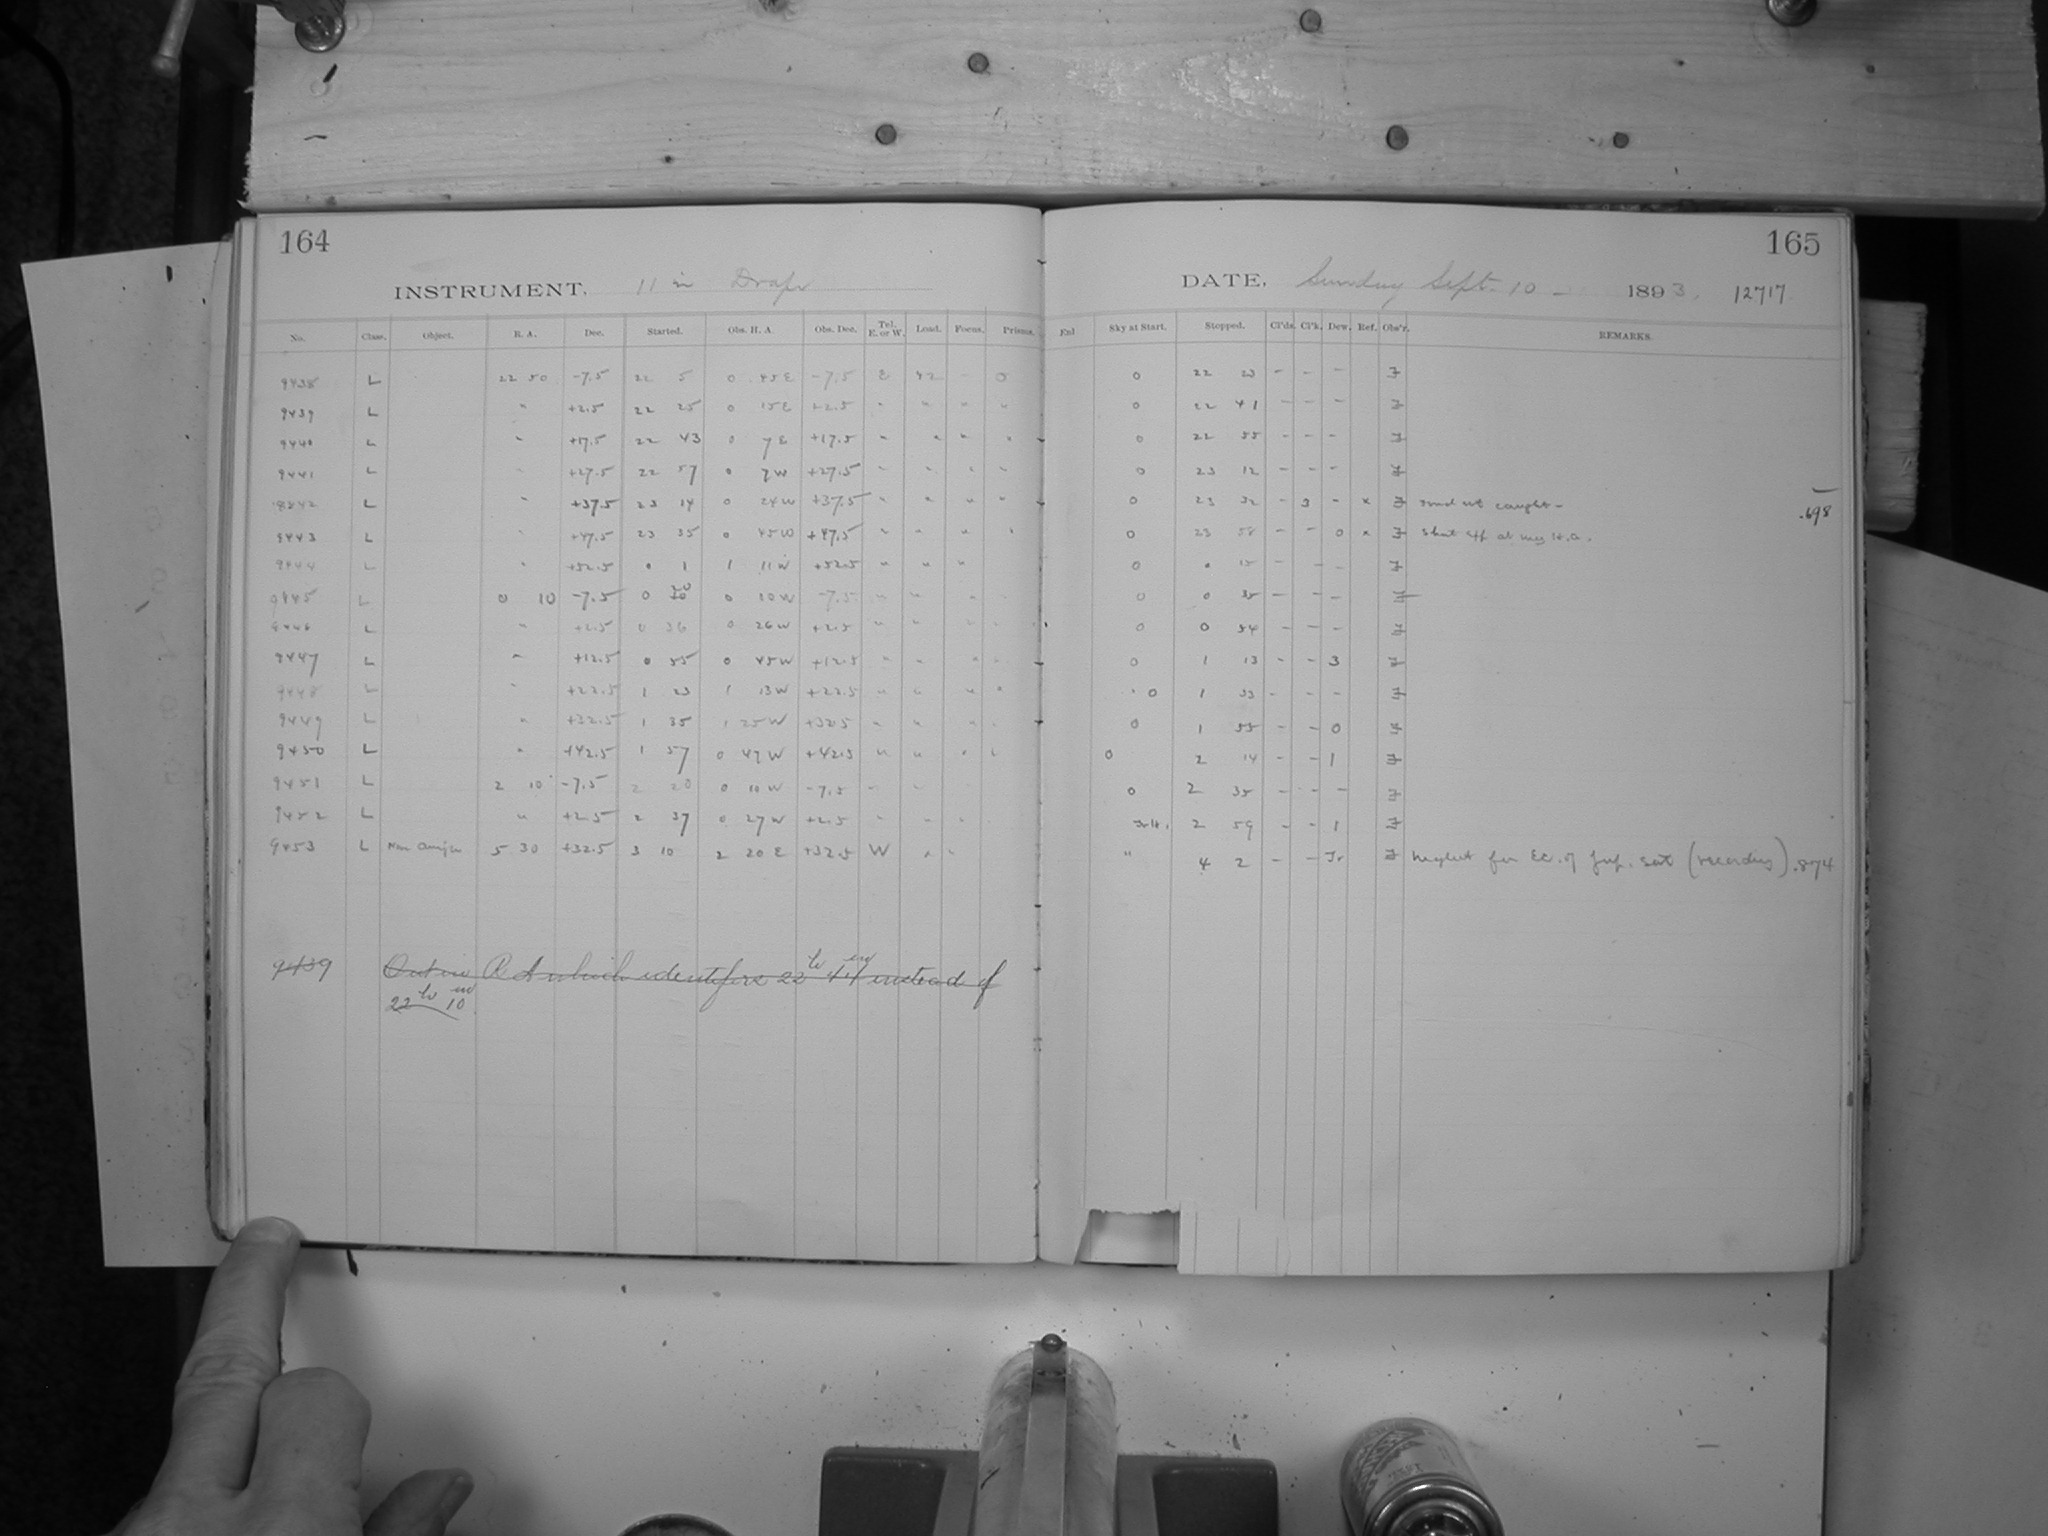 164
INSTRUMENT. 11 in Drap
No. Class. Object. R. A. Dec. Started. Obs. H. A Obs. Dec. Tel. E. or W. Load. Focus. Prisms.
9438 L 22 50 -7.5 22 5 0 45E -7.5 E 42 - 0
9439 L " +2.5 22 25 0 15E +2.5 " " " "
9440 L " +17.5 22 43 0 7E +17.5 " " " "
9441 L " +27.5 22 57 0 7W +27.5 " " " "
9442 L " +37.5 23 14 0 24W +37.5 " " " "
9443 L " +47.5 23 35 0 45W +47.5 " " " "
9444 L " +52.5 0 1 1 11W +52.5 " " "
9445 L 0 10 -7.5 0 20 0 10W -7.5 " " " "
9446 L " +2.5 0 36 0 26W +2.5 " " " "
9447 L " +12.5 0 55 0 45W +12.5 " " " "
9448 L " +22.5 1 23 1 13W +22.5 " " " "
9449 L " +32.5 1 35 1 25W +32.5 " " " "
9450 L " +42.5 1 57 0 47W +42.5 " " " "
9451 L 2 10 -7.5 2 20 0 10W -7.5 " "
9452 L " +2.5 2 37 0 27W +2.5 " " "
9453 L 5 30 +32.5 3 10 2 20E +32.5 W " "
9439 Out in R A which identifies 22h 44m instead of
22h 10m
165
DATE, Sunday Sept. 10 - 1893. 12717
Enl Sky at Start. Stopped. Cl'ds Cl'k. Dew. Ref. Obs'r. REMARKS.
0 22 23 - - - F
0 22 41 - - - F
0 22 55 - - - F
0 23 12 - - - F
0 23 32 - 3 - x F not caught - .698
0 23 58 - - 0 x F Shut off at my H.A.
0 0 15 - - - F
0 0 35 - - - F
0 0 54 - - - F
0 1 13 - - 3 F
0 1 33 - - - F
0 1 55 - - 0 F
0 2 14 - - 1 F
0 2 35 - - - F
2 59 - - 1 F
" 4 2 - - F neglect for Ec. of Jup. Sat (recording) .874